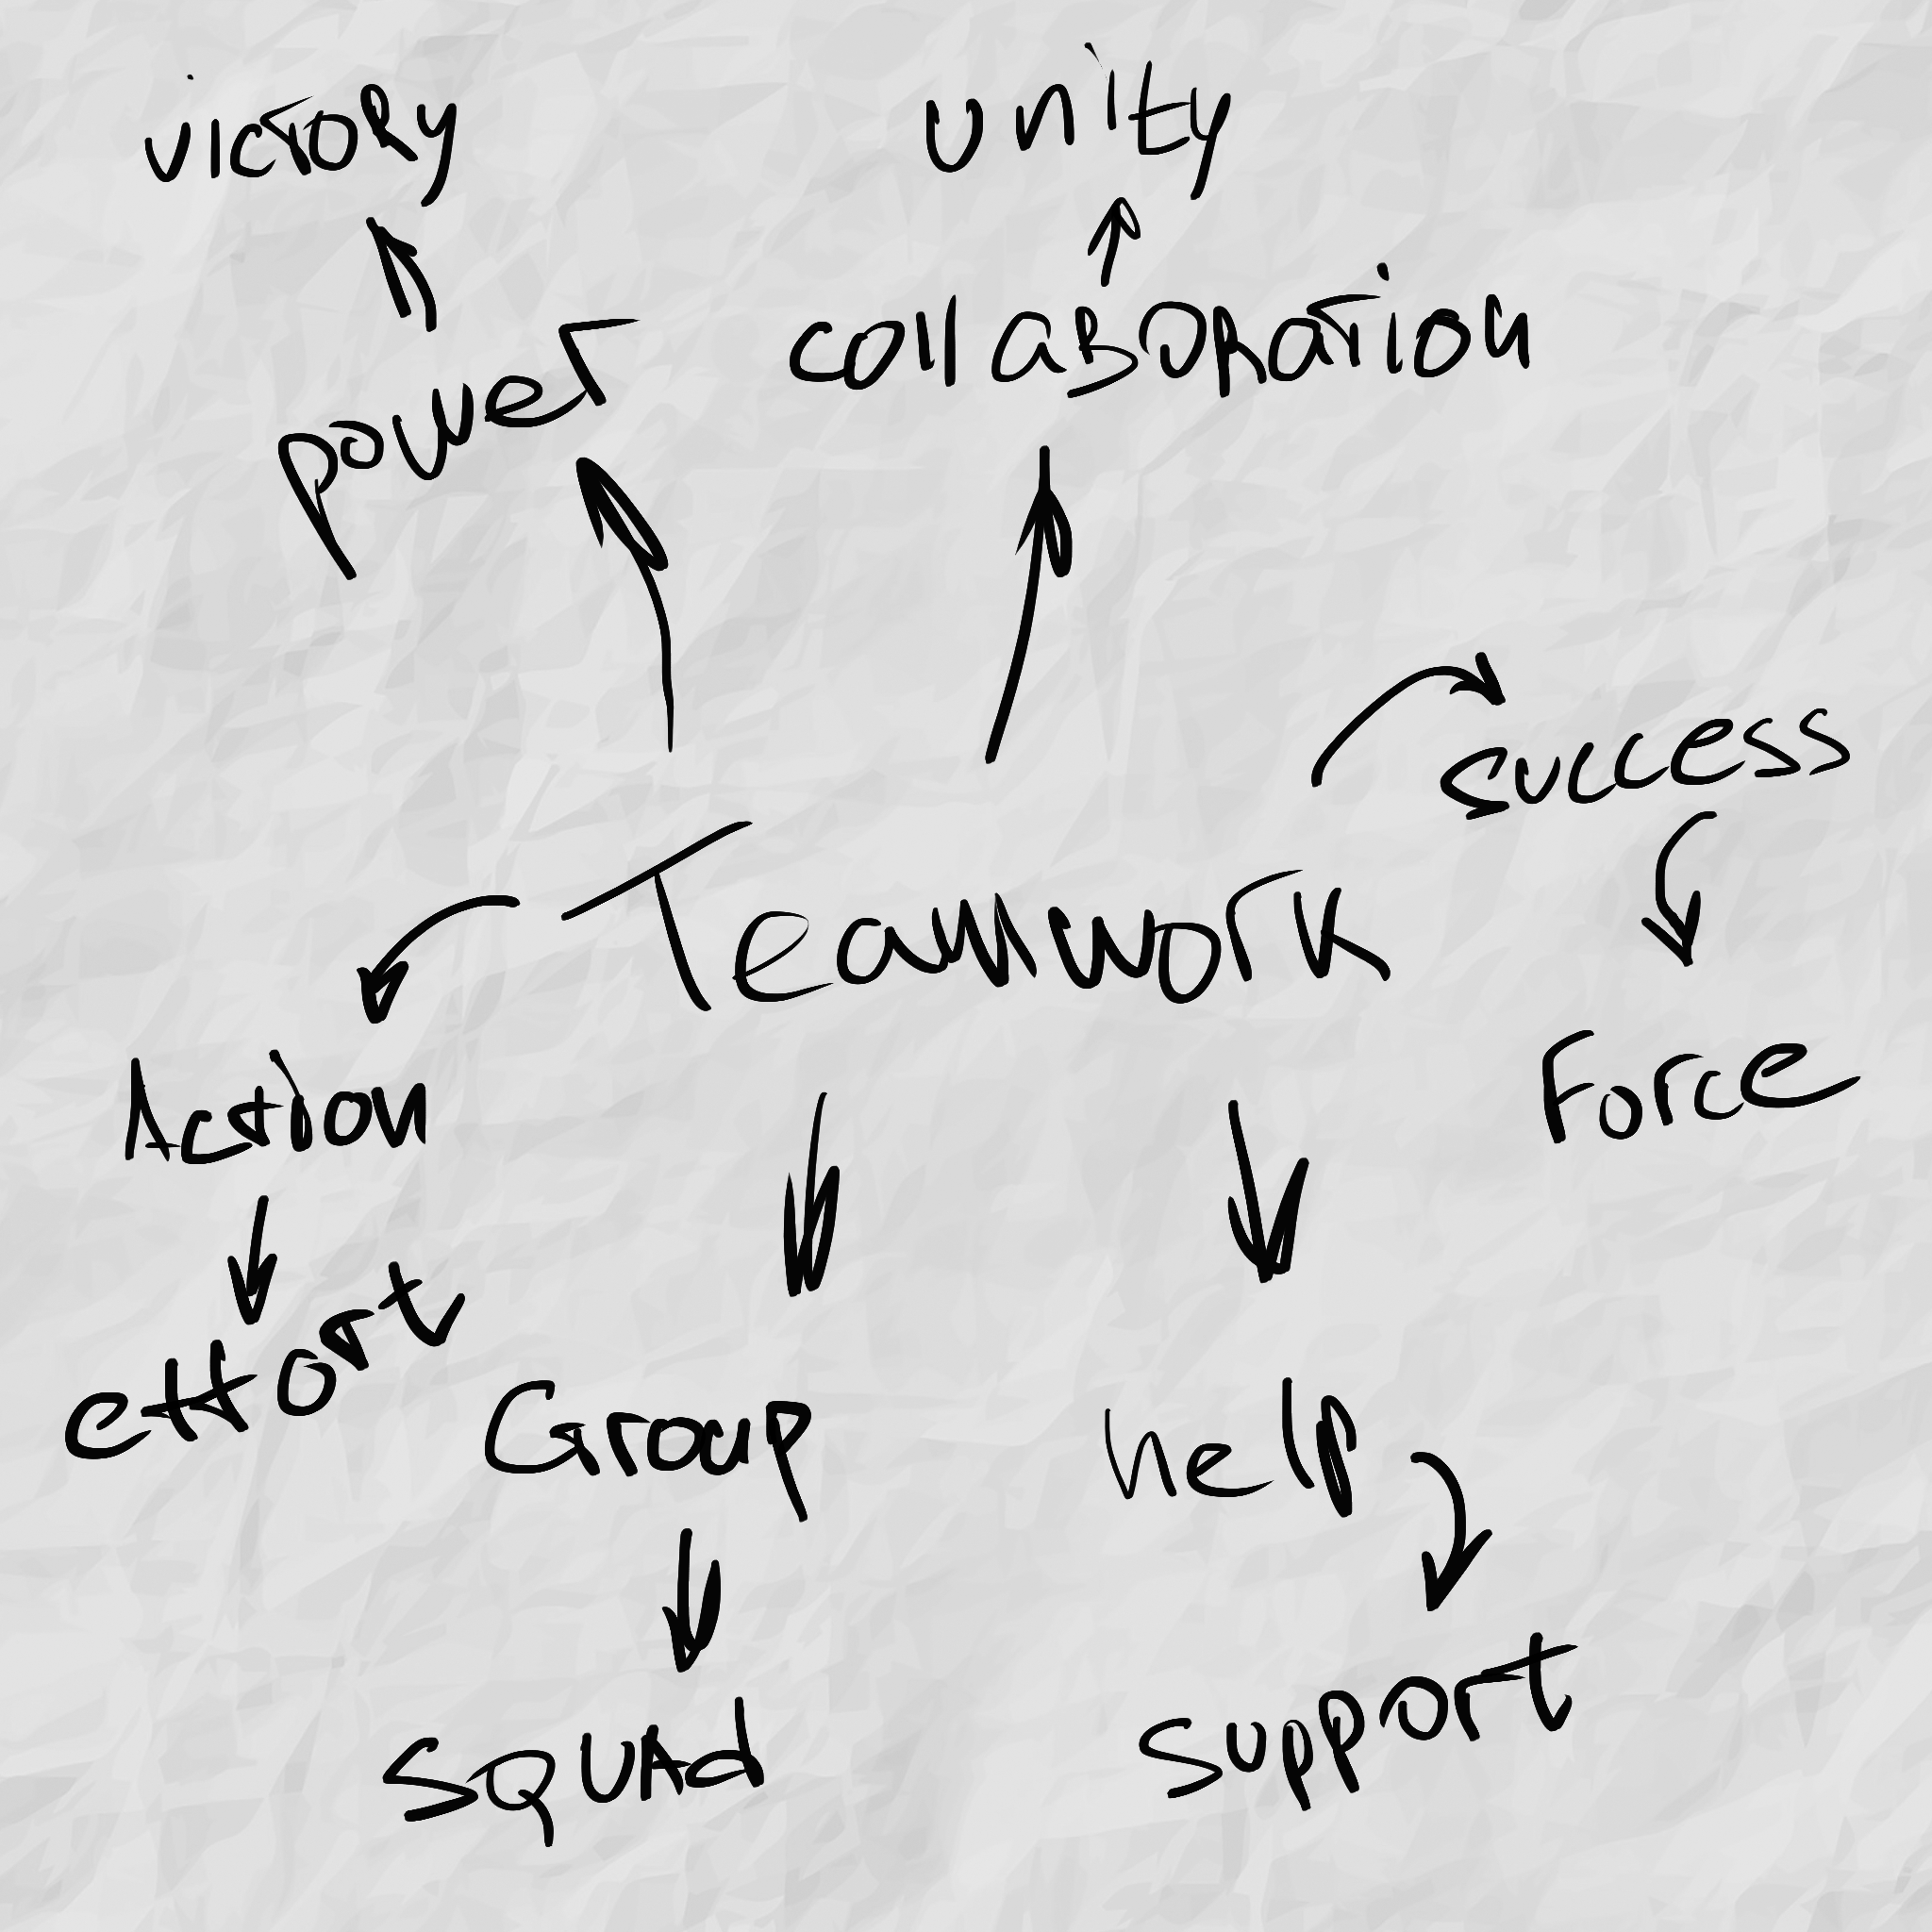 victory
unity
power
collaboration
success
Teamwork
Force
Action
effort
Group
help
squad
support